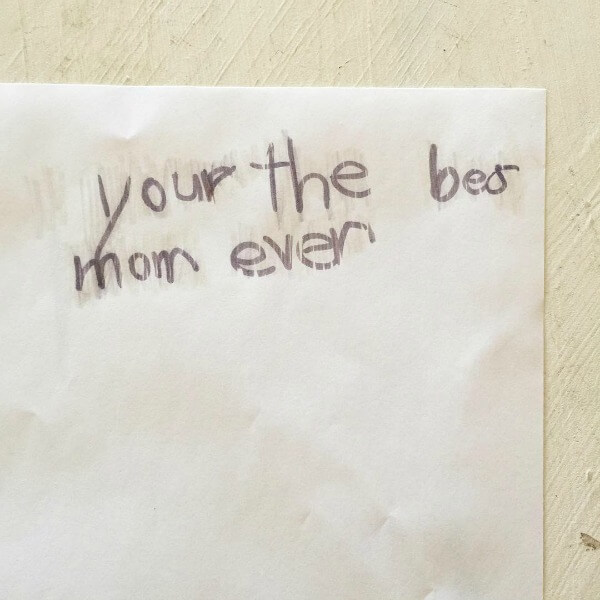 your the bes
mom ever